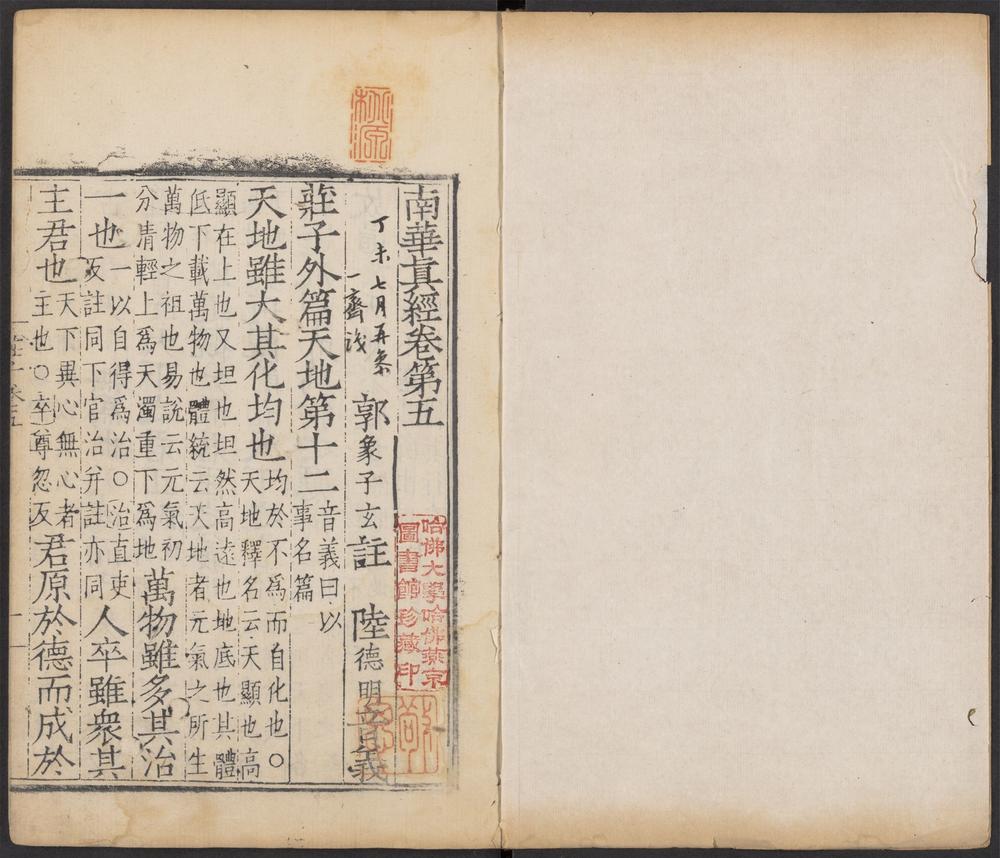 南華真經卷第五
丁未七月再叅
一齋識
郭象子玄註 陸德明音義
莊子外篇天地第十二音義曰以
事名篇
天地雖大其化均也均於不為而自化也○
天地釋名云天顯也高
顯在上也又坦也坦然高遠也地底也其體
低下載萬物也體統云天地者元氣之所生
萬物之祖也易說云元氣初
分清輕上為天濁重下為地萬物雖多其治
一也一以自得為治○治直吏
反註同下官治并註亦同人卒雖衆其
主君也天下異心無心者
主也○卒尊忽反君原於德而成於
桃源
哈佛大學哈佛燕京
圖書館珍藏印